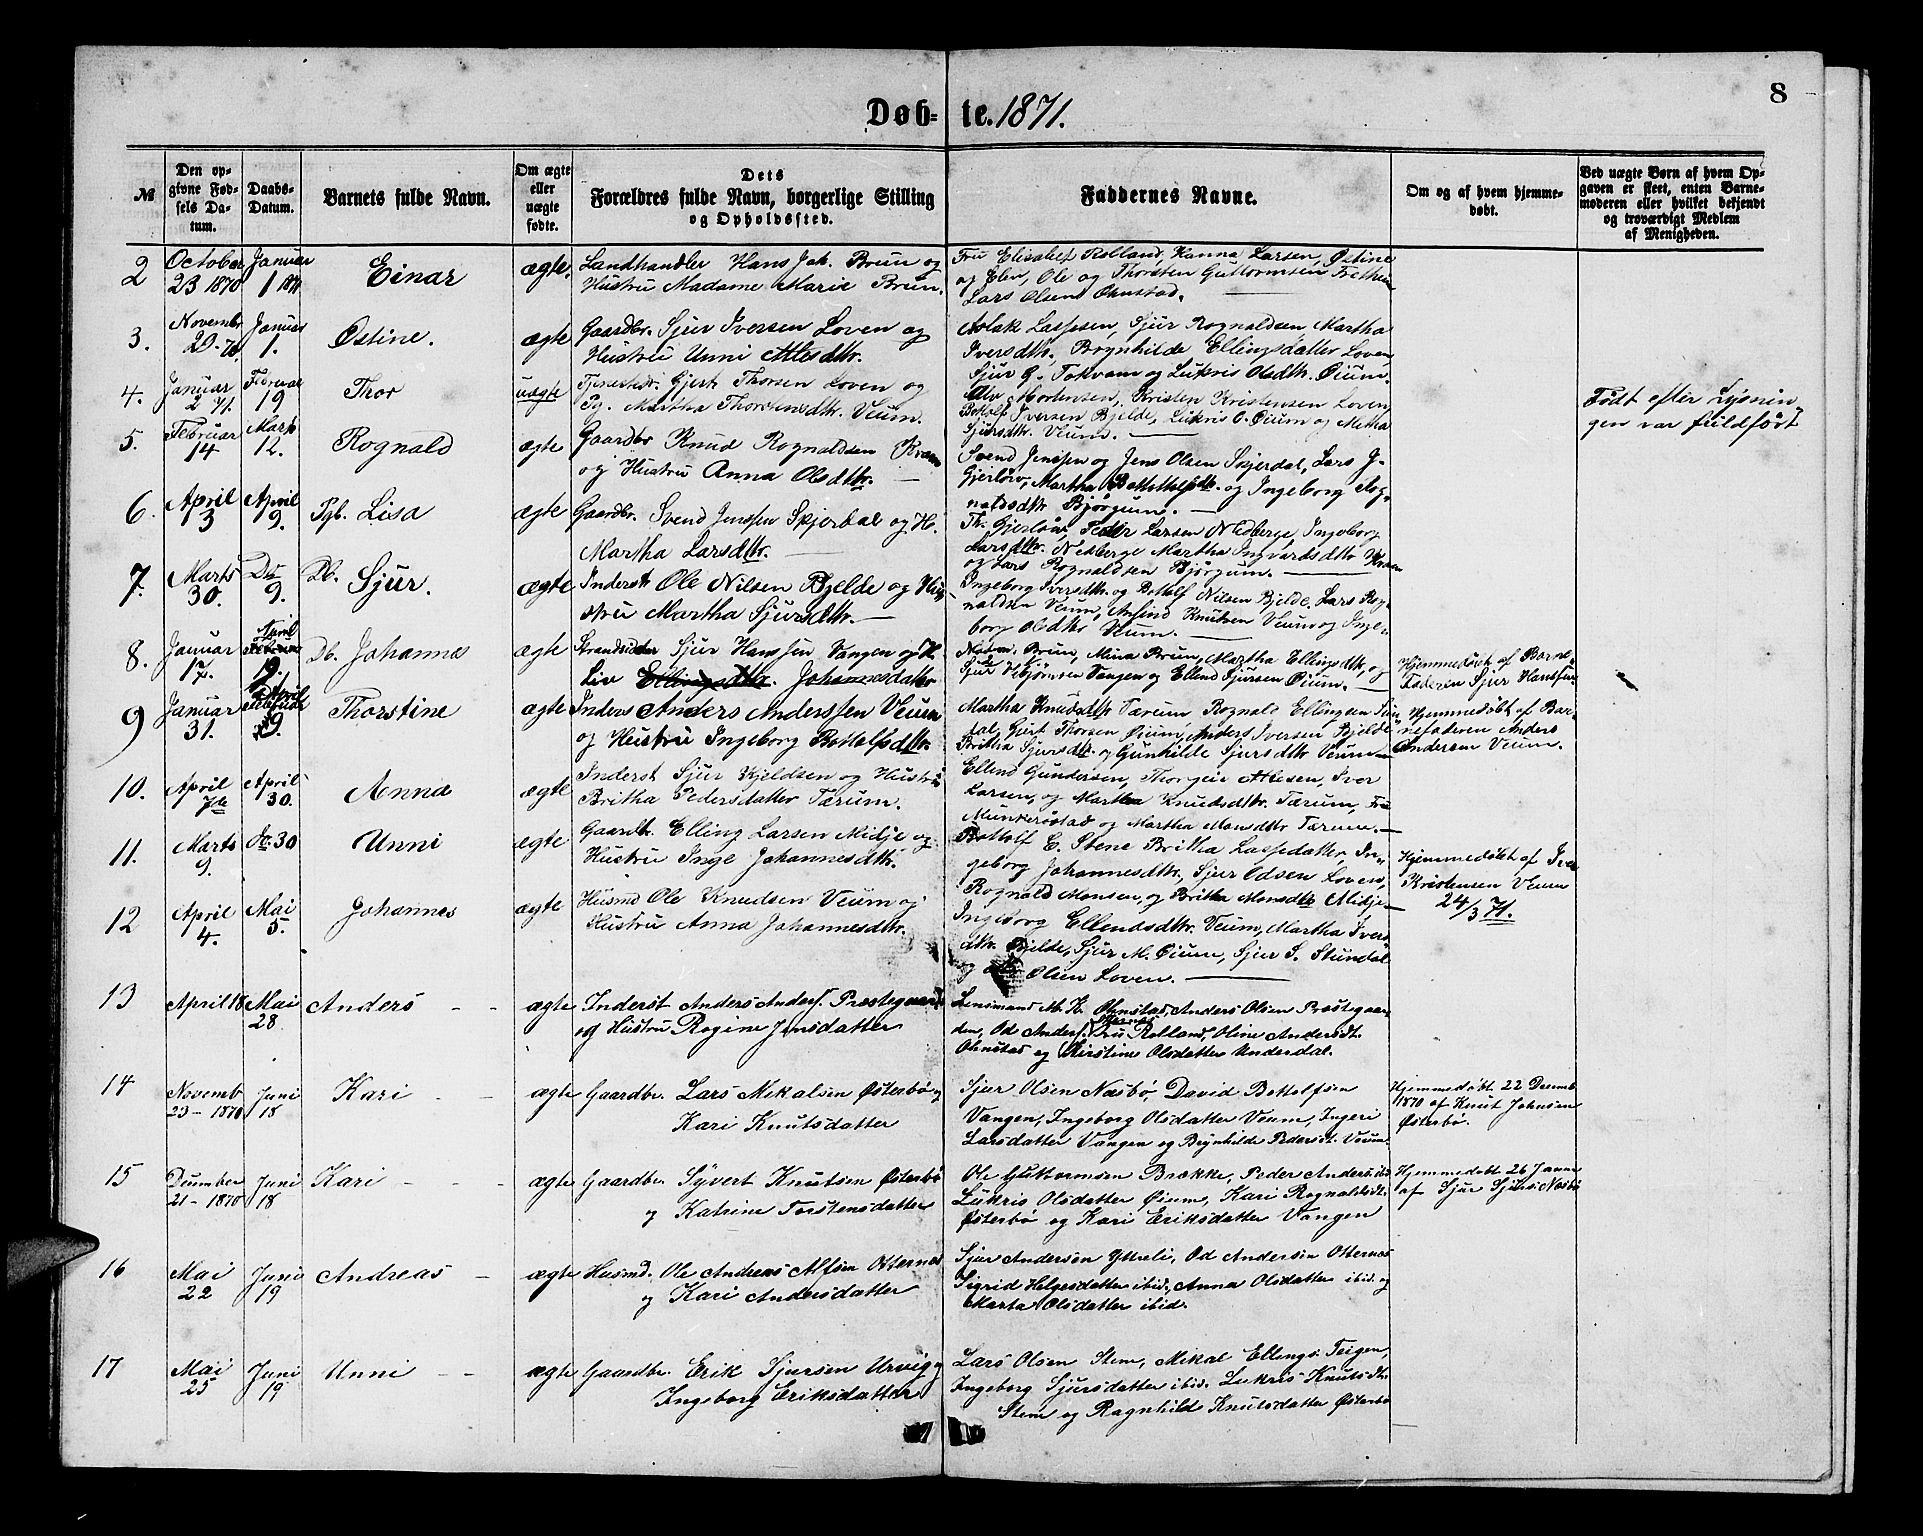 8
Døbte. 1871.
№
Den opgivne Fødsels Datum.
Daabs-Datum.
Barnets fulde Navn.
Om ægte eller uægte fødte.
Dets Forældres fulde Navn, borgerlige Stilling og Opholdssted.
Faddernes Navne.
Om og af hvem hjemmedøbt.
Ved uægte Børn af hvem Opgaven er skeet, enten Barnemoderen eller hvilket bekjendt og troværdigt Medlem af Menigheden.
2 October 23 1870 Januar 1 1871 Einar ægte. Landhandler Hans Joh. Brun og
Hustru Madame Marie Brun.
Fru Elisabet Rolland, Hanna Larsen, Østine
og Ole og Thorsten Guttormsen Fretheim
Lars Olsen Ohnstad.
3. Novembr 29-70. Januar 1. Østine. ægte Gaardbr. Sjur Iversen Loven og
Hustru Unni Atlesdtr.
Aslak Lassesen, Sjur Rognaldsen, Martha
Iversdtr., Brynhilde Ellingsdatter Loven,
Sjur G. Tokvam og Lukris Olsdtr. Øium.
4. Januar 2 71. Februar 19 Thor uægte Tjenestedr. Gjert Thorsen Loven og
Pg. Martha Thorstensdtr. Veum.
Mortensen, Kristen Kristensen Loven,
Bottolf Iversen Bjelde, Lukris O. Øium og Metha
Sjursdtr. Veum.
Født efter Lysnin
gen var fuldført
5. Februar 14 Marts 12. Rognald ægte Gaardbr Knud Rognaldsen Kvam
og Hustru Anna Olsdtr.
Svend Jenssen og Jens Olsen Skjerdal, Lars J.
Gjerløw, Martha Bottolfsdtr. og Ingeborg Rog-
naldsdtr Bjørgum.
6. April 3 April 9. Pgb. Lisa ægte Gaardbr. Svend Jenssen Skjerdal og H.
Martha Larsdtr.
Th. Gjerløw, Peder Larsen Nedberge, Ingeborg
Larsdtr. Nedberge Martha Ingvardsdtr Kvam
og Lars Rognaldsen Bjørgum.
7. Marts 30. Do 9. Db. Sjur. ægte Inderst Ole Nilsen Bjelde og Hu-
stru Martha Sjursdtr.
Ingeborg Iversdtr. og Bottolf Nilsen Bjelde, Lars Rog-
naldsen Veum, Anfind Knutsen Veum og Inge-
borg Olsdtr Veum.
8. Januar 17. April 9. Db. Johannes ægte Strandsidder Sjur Hanssen Vangen og H.
Liv Ellingsdtr. Johannesdatter
Brun, Mina Brun, Martha Ellingsdtr, og
Sjur Vebjørnsen Vangen og Ellend Sjursen Øium.
Hjemmedøbt af Barne-
Faderen Sjur Hanssen
9 Januar 31. April 9. Thorstine ægte Inders Anders Anderssen Veum
og Hustru Ingeborg Bottolfsdtr.
Martha Knudsdtr Tærum, Rognald Ellingsen
Gjert Thorsen Øium, Anders Iversen Bjelde
Britha Sjursdtr. og Gunhilde Sjursdtr Veum
Hjemmedøbt af Bar-
nefaderen Anders
Andersen Veum.
10. April 7de April 30. Anna ægte Inderst Sjur Kjeldsen og Hustru
Britha Pedersdatter Tærum.
Ellend Gundersen, Thorgeir Atlesen, Iver
Larsen, og Martha Knudsdtr. Tærum, Fru
Munkerøstad og Martha Monsdtr Tærum.
11. Marts 9. Do. 30 Unni ægte Gaardbr. Elling Larsen Midje og
Hustru Inge Johannesdtr.
Bottolf E. Stene Britha Lassedatter, In-
geborg Johannesdtr., Sjur Odsen Loven,
Rognald Monsen, og Britha Monsdtr Midje
Hjemmedøbt af Iver
Kristensen Veum
24/3 71.
12 April 4. Mai 5. Johannes ægte Husmd Ole Knudsen Veum og
Hustru Anna Johannesdtr.
Ingeborg Ellendsdtr. Veum, Martha Ivers
dtr. Bjelde, Sjur M. Øium, Sjur S. Stundal
og Olsen Loven.
13 April 18 Mai 28. Anders ægte Inderst Anders Anders. Præstegaard
og Hustru Rogine Jensdatter
Lensmand M. K. Ohnstad, Anders Olsen Præstegaar
den, Od Anders. Fru Rolland, Oline Andersdt.
Ohnstad og Kirstine Olsdatter Underdal.
14 Novemb 23 - 1870 Juni 18 Kari ægte Gaardbr. Lars Mikalsen Østerbø og
Kari Knutsdatter
Sjur Olsen Næsbø David Bottolfsen
Vangen, Ingeborg Olsdatter Veum, Ingeri
Larsdatter Vangen og Brynhilde Pedersdt. Veum.
Hjemmedøbt 22 Decemb
1870 af Knut Johnsen
Østerbø.
15 December 21 - 1870 Juni 18 Kari ægte Gaardbr. Syvert Knutsen Østerbø
og Katrine Torstensdatter
Ole Guttormsen Brække, Peder Anders. ibid
Lukris Olsdatter Øium, Kari Rognaldsdt.
Østerbø og Kari Eriksdatter Vangen
Hjemmedøbt 26 Januar
af Sjur Sjurs. Næsbø
16 Mai 22 Juni 19 Andreas ægte Husmd. Ole Andreas Alfsen Otternes
og Kari Andersdatter
Sjur Andersen Ytreli, Od Andersen Otternes
Sigrid Helgesdatter ibid., Anna Olsdatter ibid. og
Marta Olsdatter ibid.
17 Mai 25 Juni 19 Unni ægte Gaardbr. Erik Sjursen Urvig og
Ingeborg Eriksdatter
Lars Olsen Stem, Mikal Ellings. Teigen,
Ingeborg Sjursdatter ibid. Lukris Knutsdt.
Stem og Ragnhild Knutsdatter Østerbø